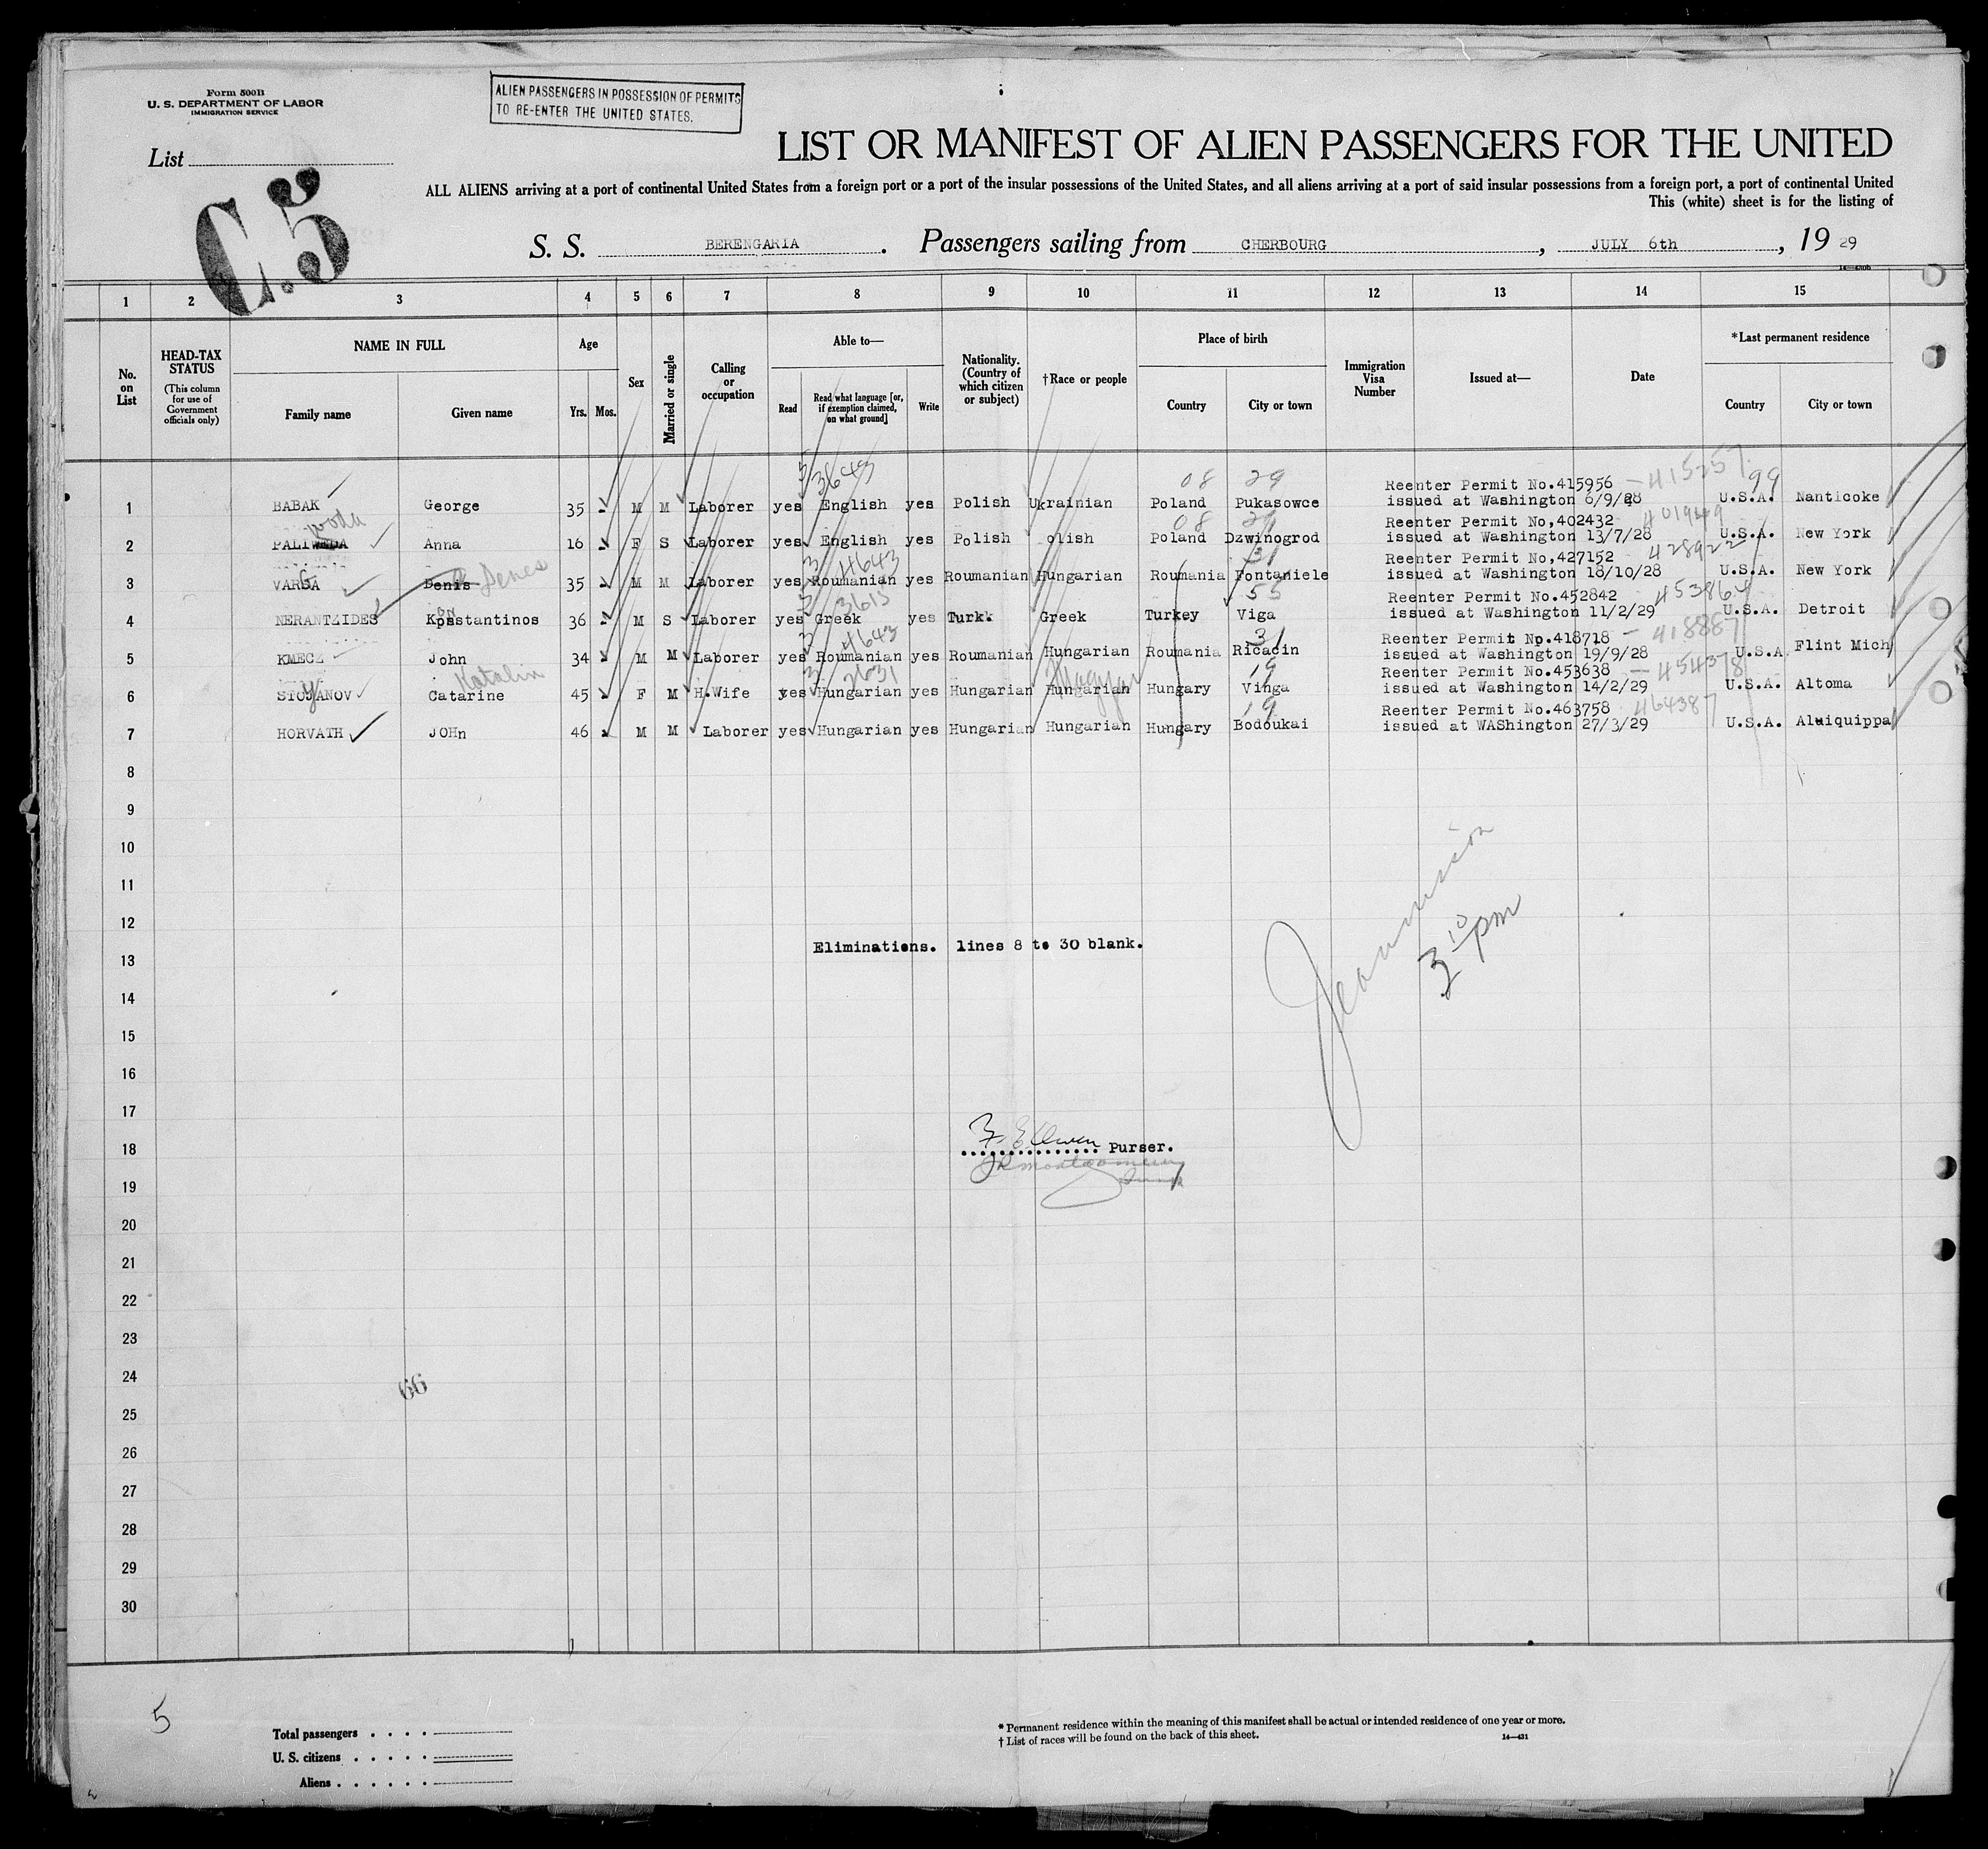 Form 500B
U. S. DEPARTMENT OF LABOR
IMMIGRATION SERVICE
ALIEN PASSENGERS IN POSSESSION OF PERMITS
TO RE-ENTER THE UNITED STATES.
List
C.5
LIST OR MANIFEST OF ALIEN PASSENGERS FOR THE UNITED
ALL ALIENS arriving at a port of continental United States from a foreign port or a port of the insular possessions of the United States, and all aliens arriving at a port of said insular possessions from a foreign port, a port of continental United
This (white) sheet is for the listing of
S. S. BERENGARIA. Passengers sailing from CHERBOURG, JULY 6th, 19 29
1 2 3 4 5 6 7 8 9 10 11 12 13 14 15
No. on List
HEAD-TAX STATUS (This column for use of Government officials only)
NAME IN FULL
Family name Given name
Age
Yrs. Mos.
Sex
Married or single
Calling or occupation
Able to—
Read
Read what language [or, if exemption claimed, on what ground]
Write
Nationality. (Country of which citizen or subject)
†Race or people
Place of birth
Country City or town
Immigration Visa Number
Issued at—
Date
*Last permanent residence
Country City or town
3643 08 29 99
Reenter Permit No.415956
1 BABAK George 35 M M Laborer yes English yes Polish Ukrainian Poland Pukasowce issued at Washington 6/9/28 U.S.A. Nanticoke
woda 08 29 401949
Reenter Permit No,402432
2 PALIWEDA Anna 16 F S Laborer yes English yes Polish olish Poland Dzwinogrod issued at Washington 13/7/28 U.S.A. New York
Denes 4643 31 428922
Reenter Permit No,427152
3 VARGA Denis 35 M M Laborer yes Roumanian yes Roumanian Hungarian Roumania Fontaniele issued at Washington 18/10/28 U.S.A. New York
3615 55 453864
Reenter Permit No.452842
4 NERANTZIDES Konstantinos 36 M S Laborer yes Greek yes Turk. Greek Turkey Viga issued at Washington 11/2/29 U.S.A. Detroit
4643 31 418887
Reenter Permit No.418718
5 KMECZ John 34 M M Laborer yes Roumanian yes Roumanian Hungarian Roumania Ricacin issued at Washington 19/9/28 U.S.A. Flint Mich
y Katalin 2631 Magyar 19 454378
Reenter Permit No.453638
6 STOYANOV Catarine 45 F M H.Wife yes Hungarian yes Hungarian Hungarian Hungary Vinga issued at Washington 14/2/29 U.S.A. Altoma
19 464387
Reenter Permit No.463758
7 HORVATH JOHn 46 M M Laborer yes Hungarian yes Hungarian Hungarian Hungary Bodoukai issued at WAShington 27/3/29 U.S.A. Aluiquippa
8
9
10
11
12
Eliminations. lines 8 to 30 blank.
3 10 pm
13
14
15
16
17
18
F. E. Owen Purser.
19
20
21
22
23
24
66
25
26
27
28
29
30
5
Total passengers
U. S. citizens
Aliens
* Permanent residence within the meaning of this manifest shall be actual or intended residence of one year or more.
† List of races will be found on the back of this sheet.
14—431